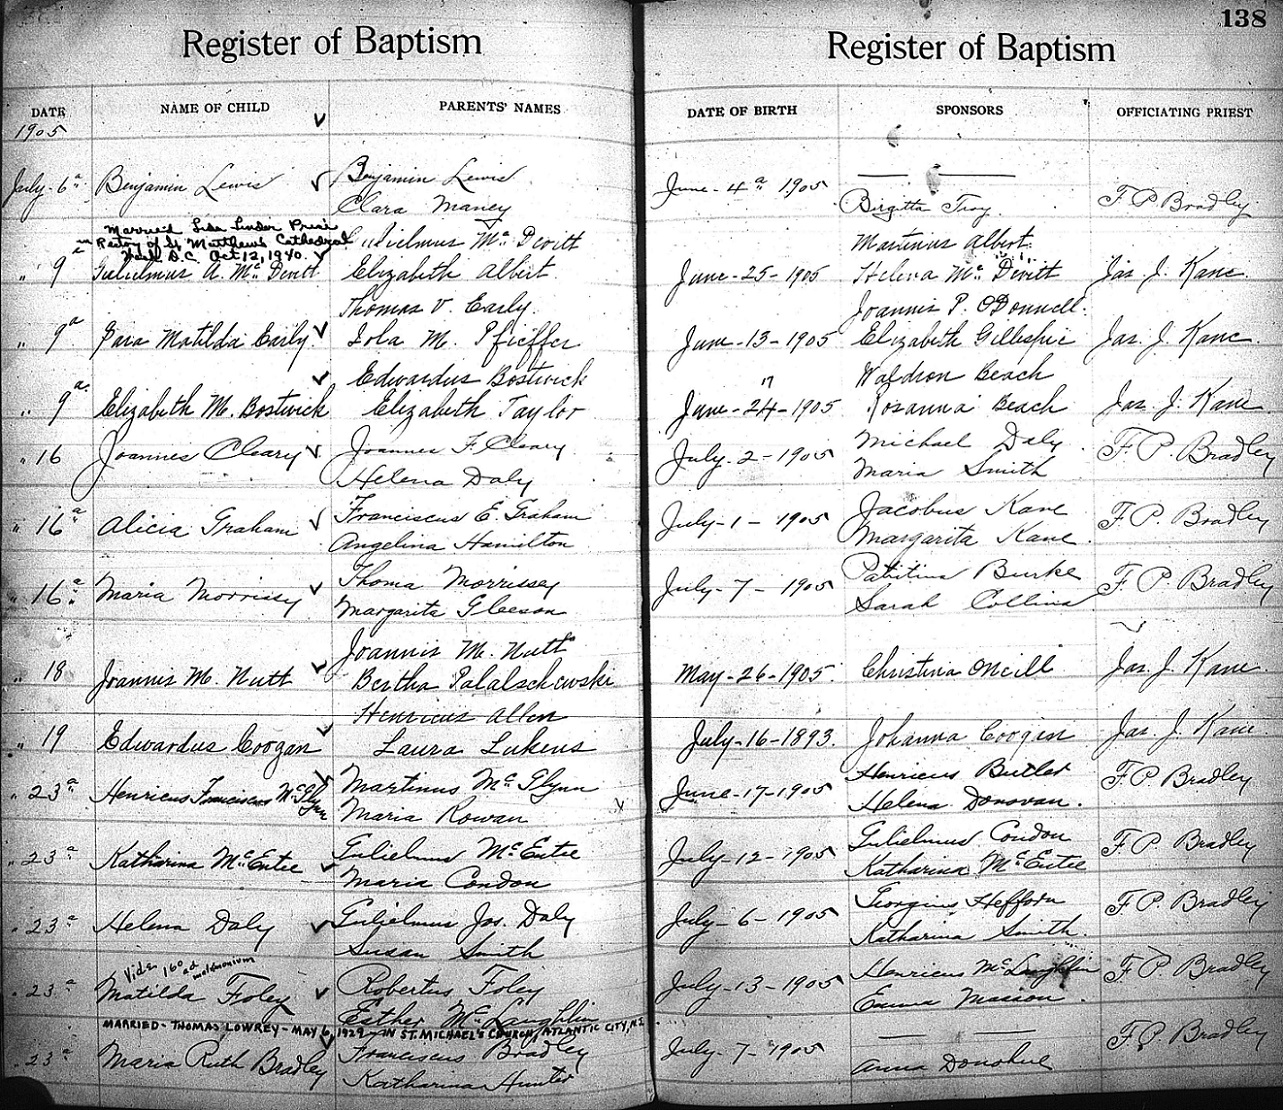 138
Register of Baptism
Register of Baptism
DATE NAME OF CHILD PARENTS' NAMES DATE OF BIRTH SPONSORS OFFICIATING PRIEST
1905
Benjamin Lewis
July 6ª Benjamin Lewis Clara Maney June - 4ª 1905 Birgitta Troy F P Bradley
Married Lida Linder Prior
Rectory of St Matthew's Cathedral
Wash D.C. Oct 12, 1940.
Gulielmus Mc Devitt Martinus Albert
" 9ª Gulielmus A. Mc Devitt Elizabeth Albert June - 25 - 1905 Helena Mc Devitt Jas. J. Kane
Thomas V. Early Joannis P. O'Donnell
" 9ª Sara Matilda Early Iola M. Pfieffer June - 13 - 1905 Elizabeth Gillespie Jas. J. Kane
Edwardus Bostwick Waldron Beach
" 9ª Elizabeth M. Bostwick Elizabeth Taylor June - 24 - 1905 Rosanna Beach Jas. J. Kane
" 16 Joannes Cleary Joannes F. Cleary July - 2 - 1905 Michael Daly F. P. Bradley
Helena Daly Maria Smith
" 16ª Alicia Graham Franciscus E. Graham July - 1 - 1905 Jacobus Kane F. P. Bradley
Angelina Hamilton Margarita Kane
" 16ª Maria Morrissy Thoma Morrissey July - 7 - 1905 Burke F. P. Bradley
Margarita Gleeson Sarah Collins
Joannis M. Nutt
" 18 Joannis M. Nutt Bertha Palalschewski May - 26 - 1905 Christina O'Neill Jas. J. Kane
Henricus Allen
" 19 Edwardus Coogan Laura Lukens July - 16 - 1893. Johanna Coogan Jas. J. Kane
" 23ª Henricus Franciscus Mc Glynn Martinus Mc Glynn June - 17 - 1905 Henricus Butler F. P. Bradley
Maria Rowan Helena Donovan.
" 23ª Katharina McEntee Gulielmus McEntee July - 12 - 1905 Gulielmus Condon F. P. Bradley
Maria Condon Katharina McEntee
" 23ª Helena Daly Gulielmus Jos. Daly July - 6 - 1905 Georgius Hefforn F. P. Bradley
Susan Smith Katharina Smith.
Vide 160 ad matrimonium
" 23ª Matilda Foley Robertus Foley July - 13 - 1905 Henricus McLaughlin F. P. Bradley
Esther McLaughlin Emma
MARRIED - THOMAS LOWREY - MAY 6, 1929 - IN ST. MICHAEL'S CHURCH, ATLANTIC CITY, N.J.
" 23ª Maria Ruth Bradley Franciscus Bradley July - 7 - 1905 Anna Donohue F. P. Bradley
Katharina Hunter